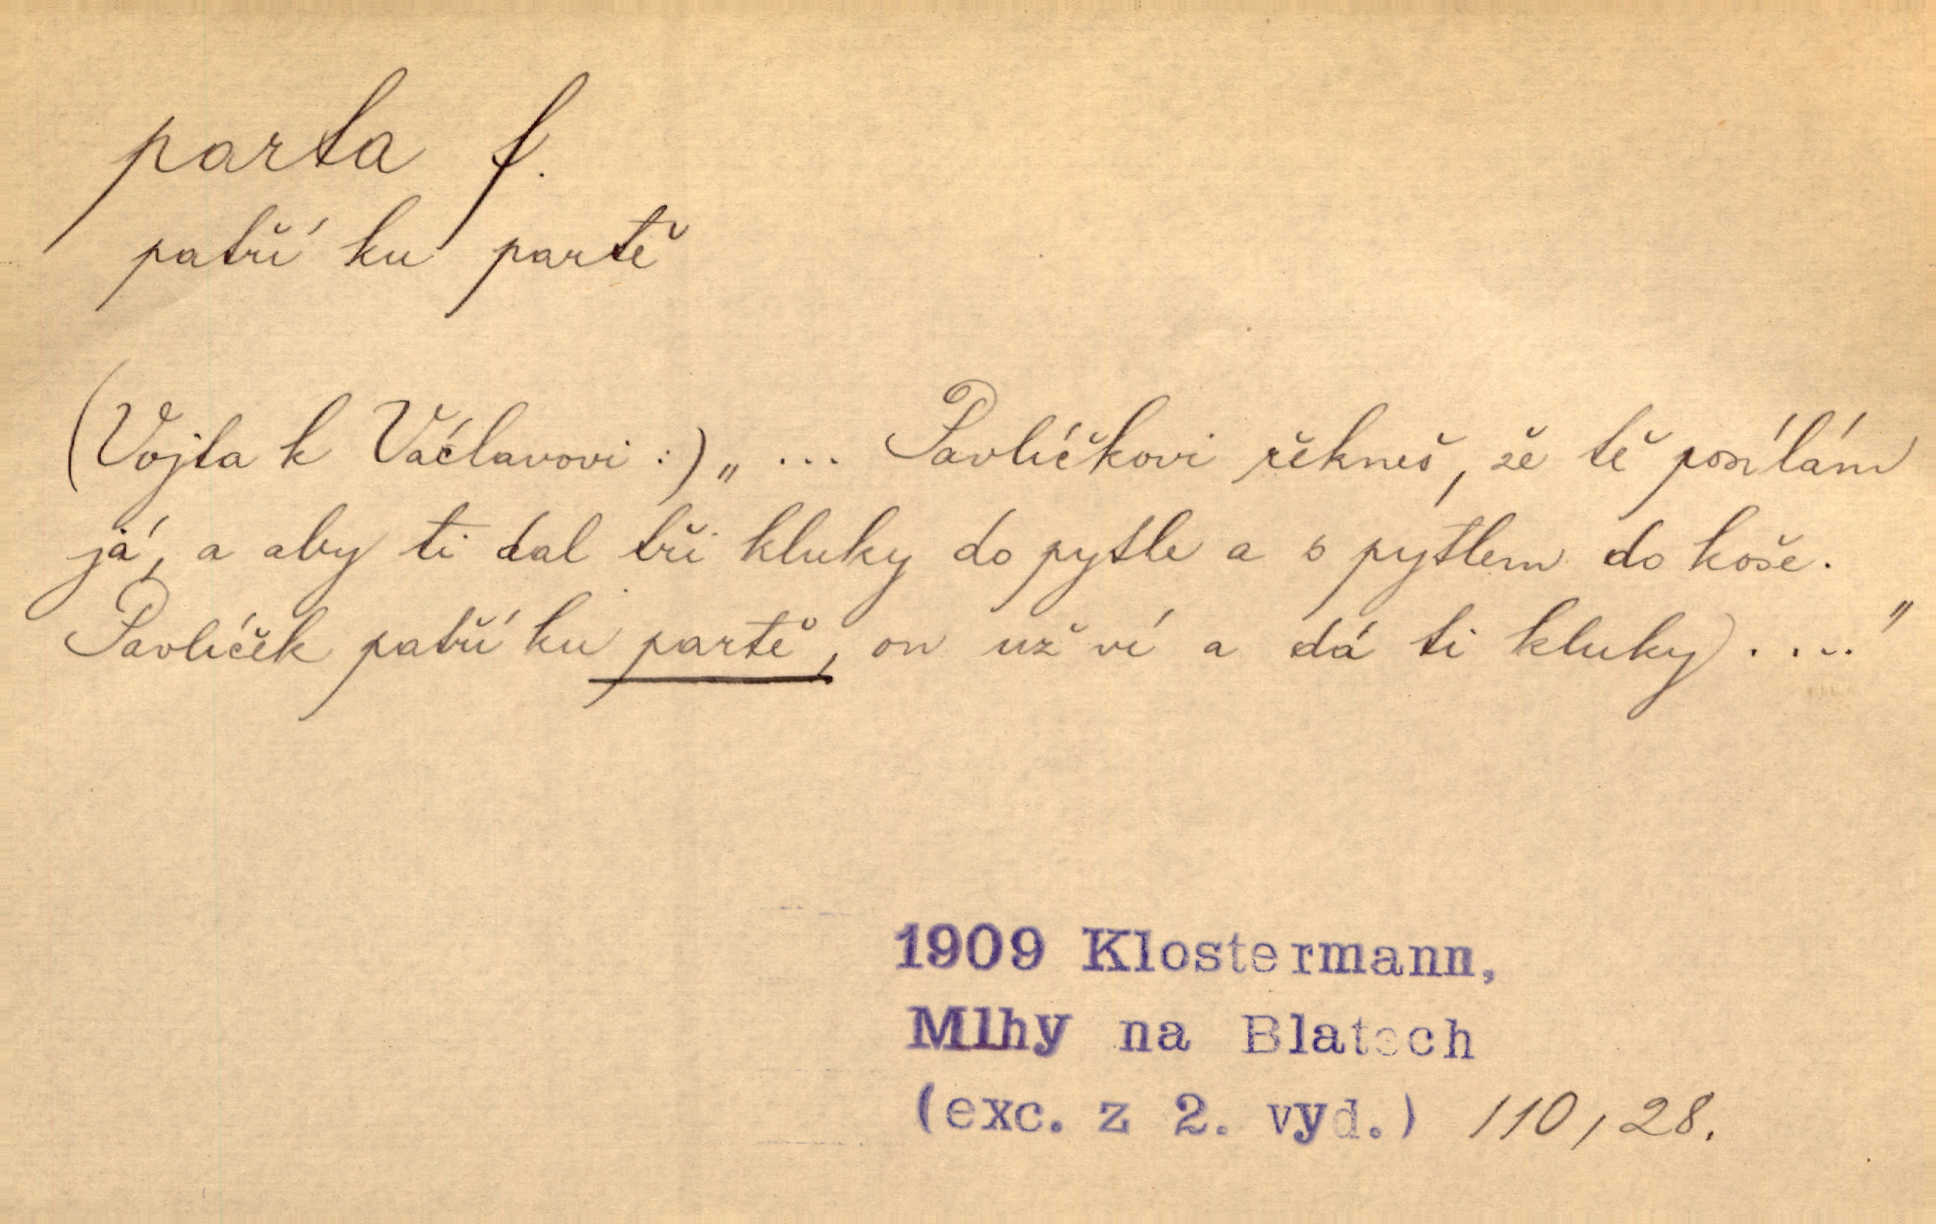 parta f.
patří ku partě
(Vojta k Václavovi:) „ ... Pavlíčkovi řekneš, že tě posílám
já, a aby ti dal tři kluky do pytle a s pytlem do koše.
Pavlíček patří ku partě, on už ví a dá ti kluky ...."
1909 Klostermann,
Mlhy na Blatech
(exc. z 2. vyd.) 110, 28.